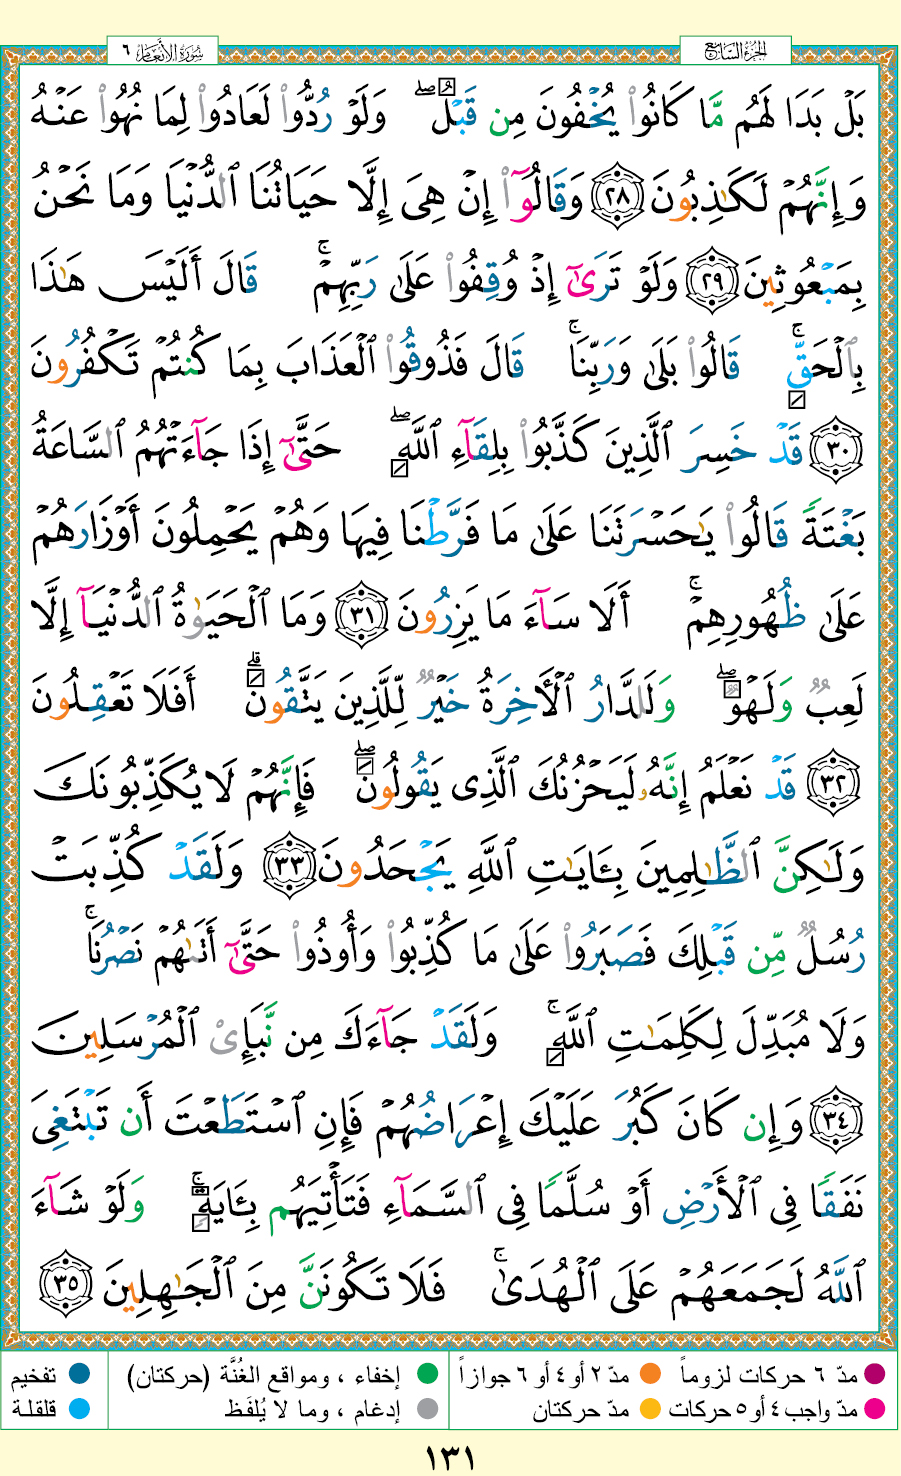 سُورَةُ الأَنْعَام ٦
الجُزْءُ السَّابِع
بَلْ بَدَا لَهُم مَّا كَانُوا۟ يُخْفُونَ مِن قَبْلُ ۖ وَلَوْ رُدُّوا۟ لَعَادُوا۟ لِمَا نُهُوا۟ عَنْهُ
وَإِنَّهُمْ لَكَـٰذِبُونَ ٢٨ وَقَالُوٓا۟ إِنْ هِىَ إِلَّا حَيَاتُنَا ٱلدُّنْيَا وَمَا نَحْنُ
بِمَبْعُوثِينَ ٢٩ وَلَوْ تَرَىٰٓ إِذْ وُقِفُوا۟ عَلَىٰ رَبِّهِمْ ۚ قَالَ أَلَيْسَ هَـٰذَا
بِٱلْحَقِّ ۚ قَالُوا۟ بَلَىٰ وَرَبِّنَا ۚ قَالَ فَذُوقُوا۟ ٱلْعَذَابَ بِمَا كُنتُمْ تَكْفُرُونَ
٣٠ قَدْ خَسِرَ ٱلَّذِينَ كَذَّبُوا۟ بِلِقَآءِ ٱللَّهِ ۖ حَتَّىٰٓ إِذَا جَآءَتْهُمُ ٱلسَّاعَةُ
بَغْتَةً قَالُوا۟ يَـٰحَسْرَتَنَا عَلَىٰ مَا فَرَّطْنَا فِيهَا وَهُمْ يَحْمِلُونَ أَوْزَارَهُمْ
عَلَىٰ ظُهُورِهِمْ ۚ أَلَا سَآءَ مَا يَزِرُونَ ٣١ وَمَا ٱلْحَيَوٰةُ ٱلدُّنْيَآ إِلَّا
لَعِبٌ وَلَهْوٌ ۖ وَلَلدَّارُ ٱلْـَٔاخِرَةُ خَيْرٌ لِّلَّذِينَ يَتَّقُونَ ۗ أَفَلَا تَعْقِلُونَ
٣٢ قَدْ نَعْلَمُ إِنَّهُۥ لَيَحْزُنُكَ ٱلَّذِى يَقُولُونَ ۖ فَإِنَّهُمْ لَا يُكَذِّبُونَكَ
وَلَـٰكِنَّ ٱلظَّـٰلِمِينَ بِـَٔايَـٰتِ ٱللَّهِ يَجْحَدُونَ ٣٣ وَلَقَدْ كُذِّبَتْ
رُسُلٌ مِّن قَبْلِكَ فَصَبَرُوا۟ عَلَىٰ مَا كُذِّبُوا۟ وَأُوذُوا۟ حَتَّىٰٓ أَتَىٰهُمْ نَصْرُنَا ۚ
وَلَا مُبَدِّلَ لِكَلِمَـٰتِ ٱللَّهِ ۚ وَلَقَدْ جَآءَكَ مِن نَّبَإِى۟ ٱلْمُرْسَلِينَ
٣٤ وَإِن كَانَ كَبُرَ عَلَيْكَ إِعْرَاضُهُمْ فَإِنِ ٱسْتَطَعْتَ أَن تَبْتَغِىَ
نَفَقًا فِى ٱلْأَرْضِ أَوْ سُلَّمًا فِى ٱلسَّمَآءِ فَتَأْتِيَهُم بِـَٔايَةٍ ۚ وَلَوْ شَآءَ
ٱللَّهُ لَجَمَعَهُمْ عَلَى ٱلْهُدَىٰ ۚ فَلَا تَكُونَنَّ مِنَ ٱلْجَـٰهِلِينَ ٣٥
مدّ ٦ حركات لزوماً مدّ ٢ أو ٤ أو ٦ جوازاً إخفاء ، ومواقع الغُنَّة (حركتان) تفخيم
مدّ واجب ٤ أو ٥ حركات مدّ حركتان إدغام ، وما لا يُلفَظ قلقلة
١٣١